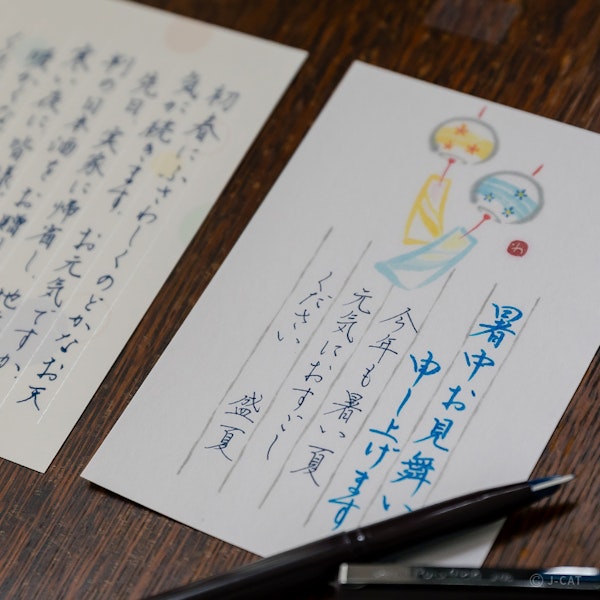 暑中お見舞い
申し上げます
今年も暑い夏
元気におすごし
ください
盛夏
わ
初春にふさわしくのどかなお天
気が続きます。お元気ですか。
先日、実家に帰省し、地
判の日本酒をお贈
寒い夜に皆様
© J-CAT